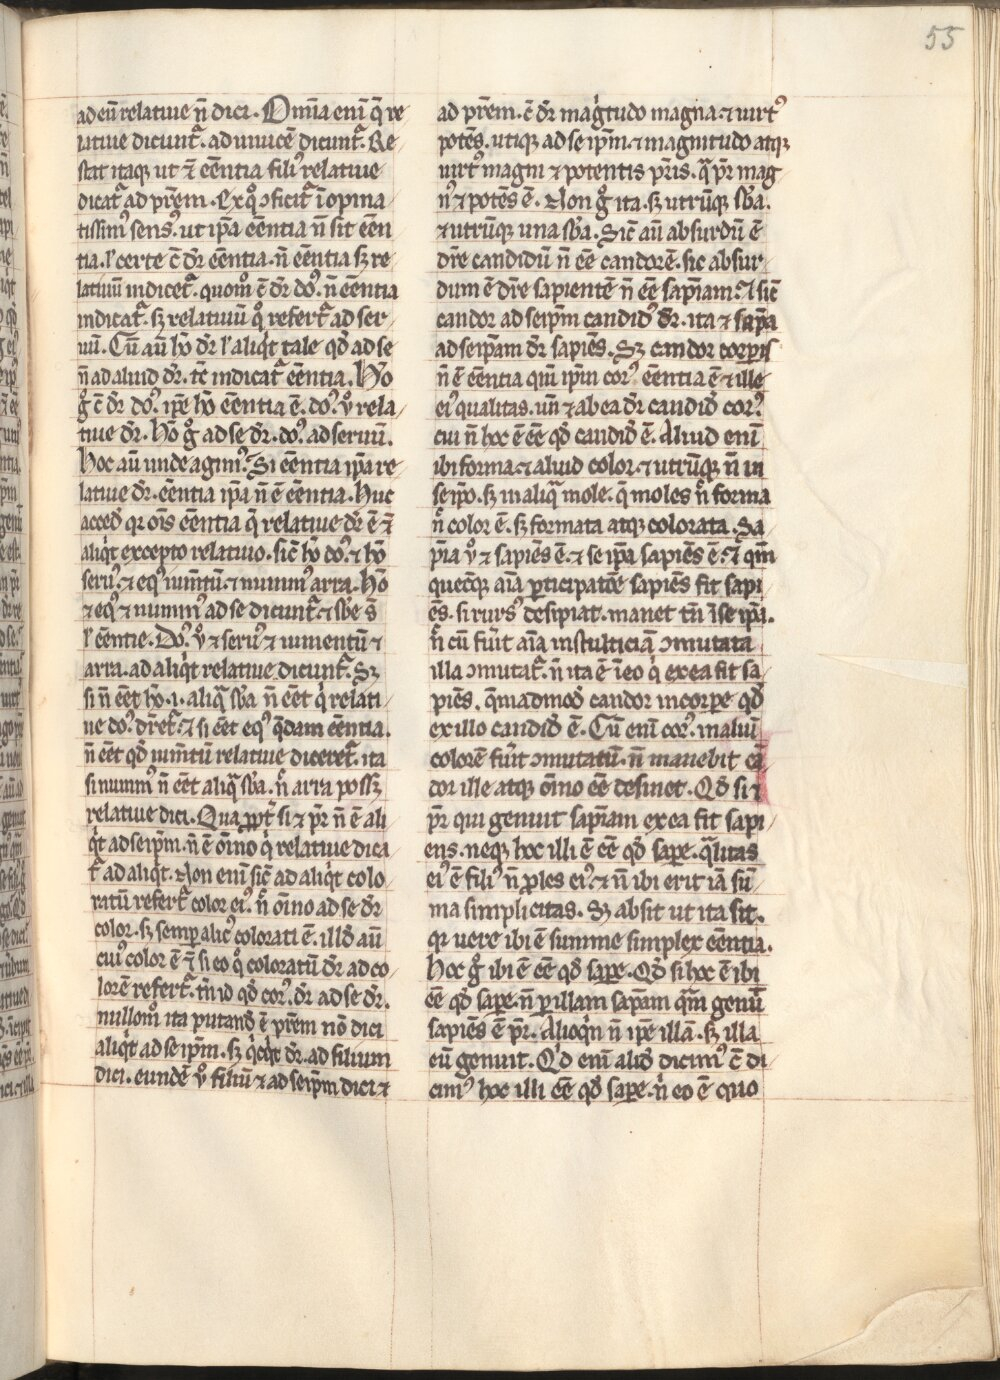 55
ad eū relatiue n̄ dici. Om̄ia enī q̄ re
latiue dicunt᷑. ad inuicē dicunt᷑. Re
stat itaqꝫ ut ⁊̄ eēntia filiꝰ relatiue
dicat᷑ ad pr̄em. Ex qͦ ↄficit᷑ īopina
tissimꝰ sensꝰ. ut ip̄a eēntia n̄ sit eēn
tia. ł certe c̄ dr̄ eēntia. n̄ eēntia sꝫ re
latiuū indicet᷑. quom̊ c̄ dr̄ do᷒. n̄ eēntia
indicat᷑. sꝫ relatiuū qͦ refert᷑ ad ser
uū. Cū aū hō dr̄ ł aliqͥt tale qd̄ ad se
n̄ ad aliud dr̄. tc̄ indicat᷑ eēntia. Hō
g̊ c̄ dr̄ do᷒. ip̄e hō eēntia ē. do᷒. ů rela
tiue dr̄. Hō g̊ ad se dr̄. do᷒. ad seruū.
Hoc aū unde agimꝰ. Si eēntia ip̄a re
latiue dr̄. eēntia ip̄a n̄ ē eēntia. Huc
acced̄ qꝛ oīs eēntia q̄ relatiue dr̄ ē ⁊̄
aliqͥt excepto relatiuo. sic̄ hō do᷒. ⁊ hō
seruꝰ. ⁊ eqꝰ iumtū. ⁊ nummꝰ arra. Hō
⁊ eqꝰ ⁊ nummꝰ ad se dicunt᷑. ⁊ sb̄e s̄
ł eēntie. Do᷒. ů ⁊ seruꝰ ⁊ iumentū ⁊
arra. ad aliqͥt relatiue dicunt᷑. Sꝫ
si n̄ eēt hō .i. aliqᷓ sb̄a n̄ eēt qͥ relati
ue do᷒. dr̄et᷑. ⁊ si eēt eqꝰ q̄dam eēntia.
n̄ eēt qd̄ iumtū relatiue diceret᷑. ita
si nummꝰ n̄ eēt aliqᷓ sb̄a. n̊ arra possꝫ
relatiue dici. Qua ꝓpt̄ si ⁊ pr̄ n̄ ē ali
qͥt ad seip̄m. n̄ ē ōino qͥ relatiue dica
t᷑ ad aliqͥt. Non enī sic̄ ad aliqͥt colo
ratū refert᷑ color eiꝰ. n̊ oīno ad se dr̄
color. sꝫ semꝑ alicꝰ colorati ē. illd̄ aū
cuiꝰ color ē ⁊̄ si eo qͦ coloratū dr̄ ad co
lorē refert᷑. tn̄ id qd̄ corꝰ dr̄ ad se dr̄.
nullom̊ ita putand̄ ē pr̄em nō dici
aliqͥt ad seip̄m. sꝫ qͥcqͥt dr̄. ad filium
dici. eundē ů filiū ⁊ ad seip̄m dici ⁊
ad pr̄em. c̄ dr̄ magͥtudo magna. ⁊ uirtꝰ
potēs. utiqꝫ ad se ip̄m. ⁊ magnitudo atqꝫ
uirtꝰ magni ⁊ potentis pr̄is. qᷓ pr̄ mag
nꝰ ⁊ potēs ē. Non g̊ ita. sꝫ utrūqꝫ sb̄a.
⁊ utrūqꝫ una sb̄a. Sic̄ aū absurdū ē
dr̄e candidū n̄ eē candorē. sic absur
dum ē dr̄e sapientē n̄ eē sap̄iam. ⁊ sic̄
candor ad seip̄m candidꝰ dr̄. ita ⁊ sap̄ia
ad seip̄am dr̄ sapiēs. Sꝫ candor corꝑis
n̄ ē eēntia qm̄ ip̄m corꝰ eēntia ē ⁊ ille
eiꝰ qualitas. un̄ ⁊ ab ea dr̄ candid̄ corꝰ.
cui n̄ hoc ē eē qd̄ candid̄ ē. Aliud enī
ibi forma. ⁊ aliud color. ⁊ utrūqꝫ n̄ in
seip̄o. sꝫ in aliqᷓ mole. q̄ moles n̊ forma
n̊ color ē. sꝫ formata atqꝫ colorata. Sa
p̄ia ů ⁊ sapiēs ē. ⁊ se ip̄a sapiēs ē. ⁊ qm̄
quecūqꝫ aīa ꝑticipatōe sapiēs fit sapi
ēs. si rursꝰ desipiat. manet tn̄ ī se ip̄a.
n̊ cū fūit aīa in stulticiā ↄmutata
illa ↄmutat᷑. n̄ ita ē ī eo qͥ ex ea fit sa
piēs. q̄madmod̄ candor in corꝑe qd̄
ex illo candid̄ ē. Cū enī corꝰ. in aliū
colorē fūit ↄmutatū. n̄ manebit cā
dor ille atqꝫ ōino eē desinet. Qd̄ si ⁊
pr̄ qui genuit sap̄iam ex ea fit sapi
ens. neqꝫ hoc illi ē eē qd̄ saꝑe. qᷓlitas
eiꝰ ē filiꝰ n̄ ꝓles eiꝰ. ⁊ n̄ ibi erit iā sū
ma simplicitas. Sꝫ absit ut ita sit.
qꝛ uere ibi ē summe simplex eēntia.
Hoc g̊ ibi ē eē qd̄ saꝑe. Qd̄ si hoc ē ibi
eē qd̄ saꝑe. n̄ ꝑ illam sap̄iam qᷓm genū
sapiēs ē pr̄. Alioqͥn n̄ ip̄e illā. sꝫ illa
eū genuit. Qͥd enī aliud̄ dicimꝰ c̄ di
cimꝰ hoc illi eē qd̄ saꝑe. nͥ eo ē quo